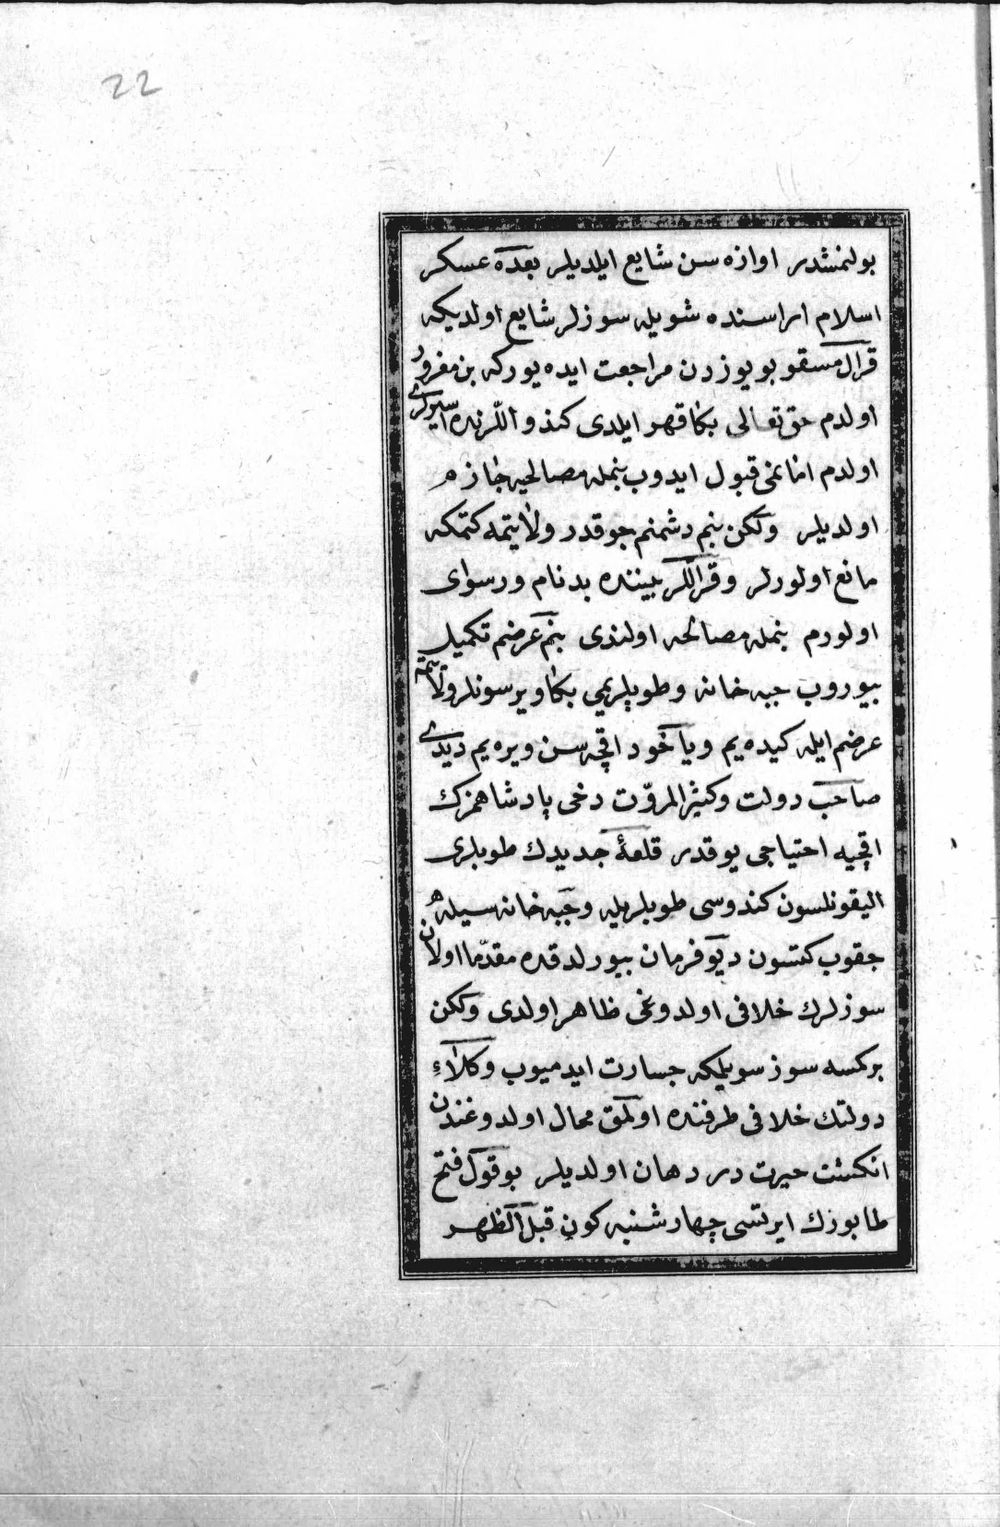 22
بولنمشدر اوازه سن شايع ايلديلر بعده عسكر
اسلام اراسنده شويله سوزلر شايع اولديكه
قرال مسقو بو يوزدن مراجعت ايده يوركه بن مغرور
اولدم حق تعالى بكا قهر ايلدى كندو اللرنده اسيرلرى
اولدم امانمى قبول ايدوب بنمله مصالحيه جازم
اولديلر ولكن بنم دشمنم چوقدر ولايتمه كتمكه
مانع اولورلر وقراللر بيننده بدنام ورسواى
اولورم بنمله مصالحه اولندى بنم عرضم تكميل
بيوروب جبه خانه وطوپلريمى بكا ويرسونلر ولايتمه
عرضم ايله كيده يم ويا خود اقچه سن ويره يم ديدى
صاحب دولت وكثير المروّت دخى پادشاهمزك
اقچيه احتياجى يوقدر قلعۀ جديدك طوبلرى
اليقونلسون كندوسى طوبلريله وجبه خانه سيله
چقوب كتسون ديو فرمان بيورلدقده مقدّما اولان
سوزلرك خلافى اولدوغى ظاهر اولدى ولكن
بر كمسه سوز سويلمكه جسارت ايدميوب وكلاء
دولتك خلافى طرفنده اولمق محال اولدوغندن
انكشت حيرت در دهان اولديلر بو قول فتح
طابورك ايرتسى چهارشنبه كون قبل الظهر